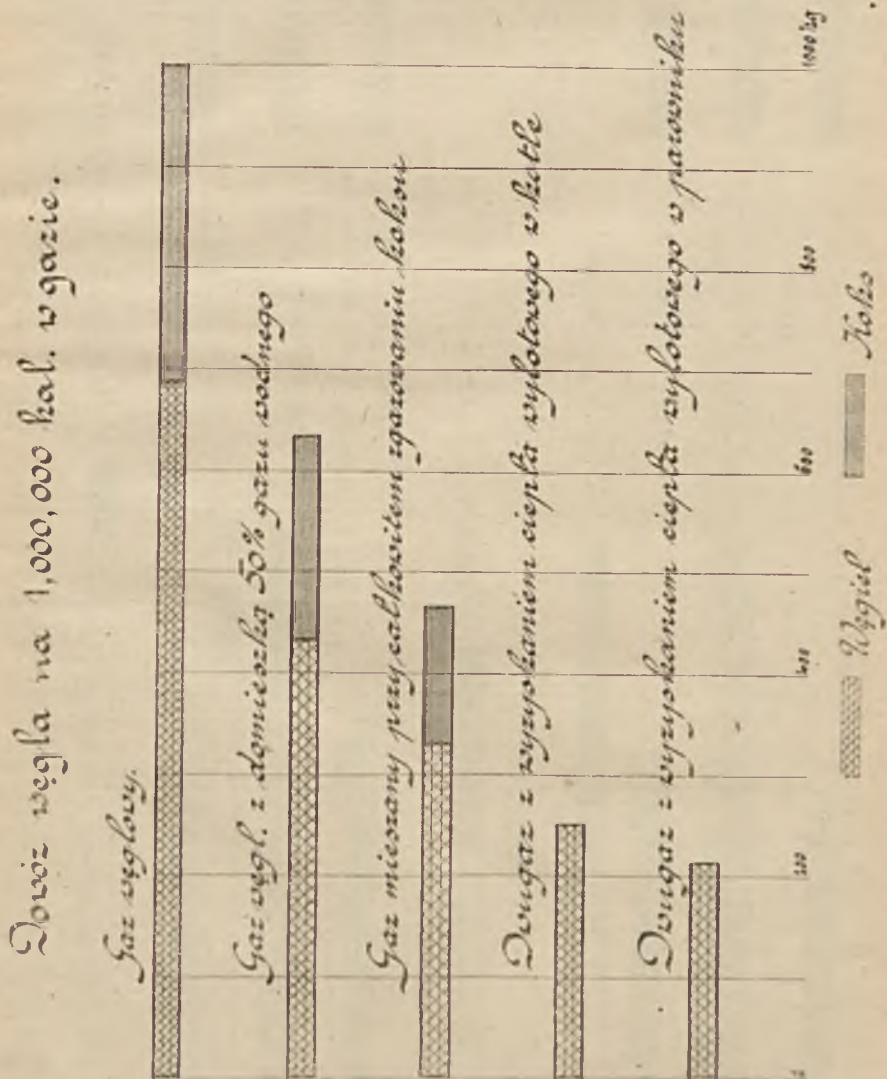 Dowóz węgla na 1,000,000 kal. w gazie.
Gaz węglowy.
Gaz węgl. z domieszką 50% gazu wodnego
Gaz mieszany przy całkowitem zgazowaniu koksu
Dwugaz z wyzyskaniem ciepła wylotowego w kotle
Dwugaz z wyzyskaniem ciepła wylotowego w parowniku
200
400
600
800
1000 kg
Węgiel
Koks